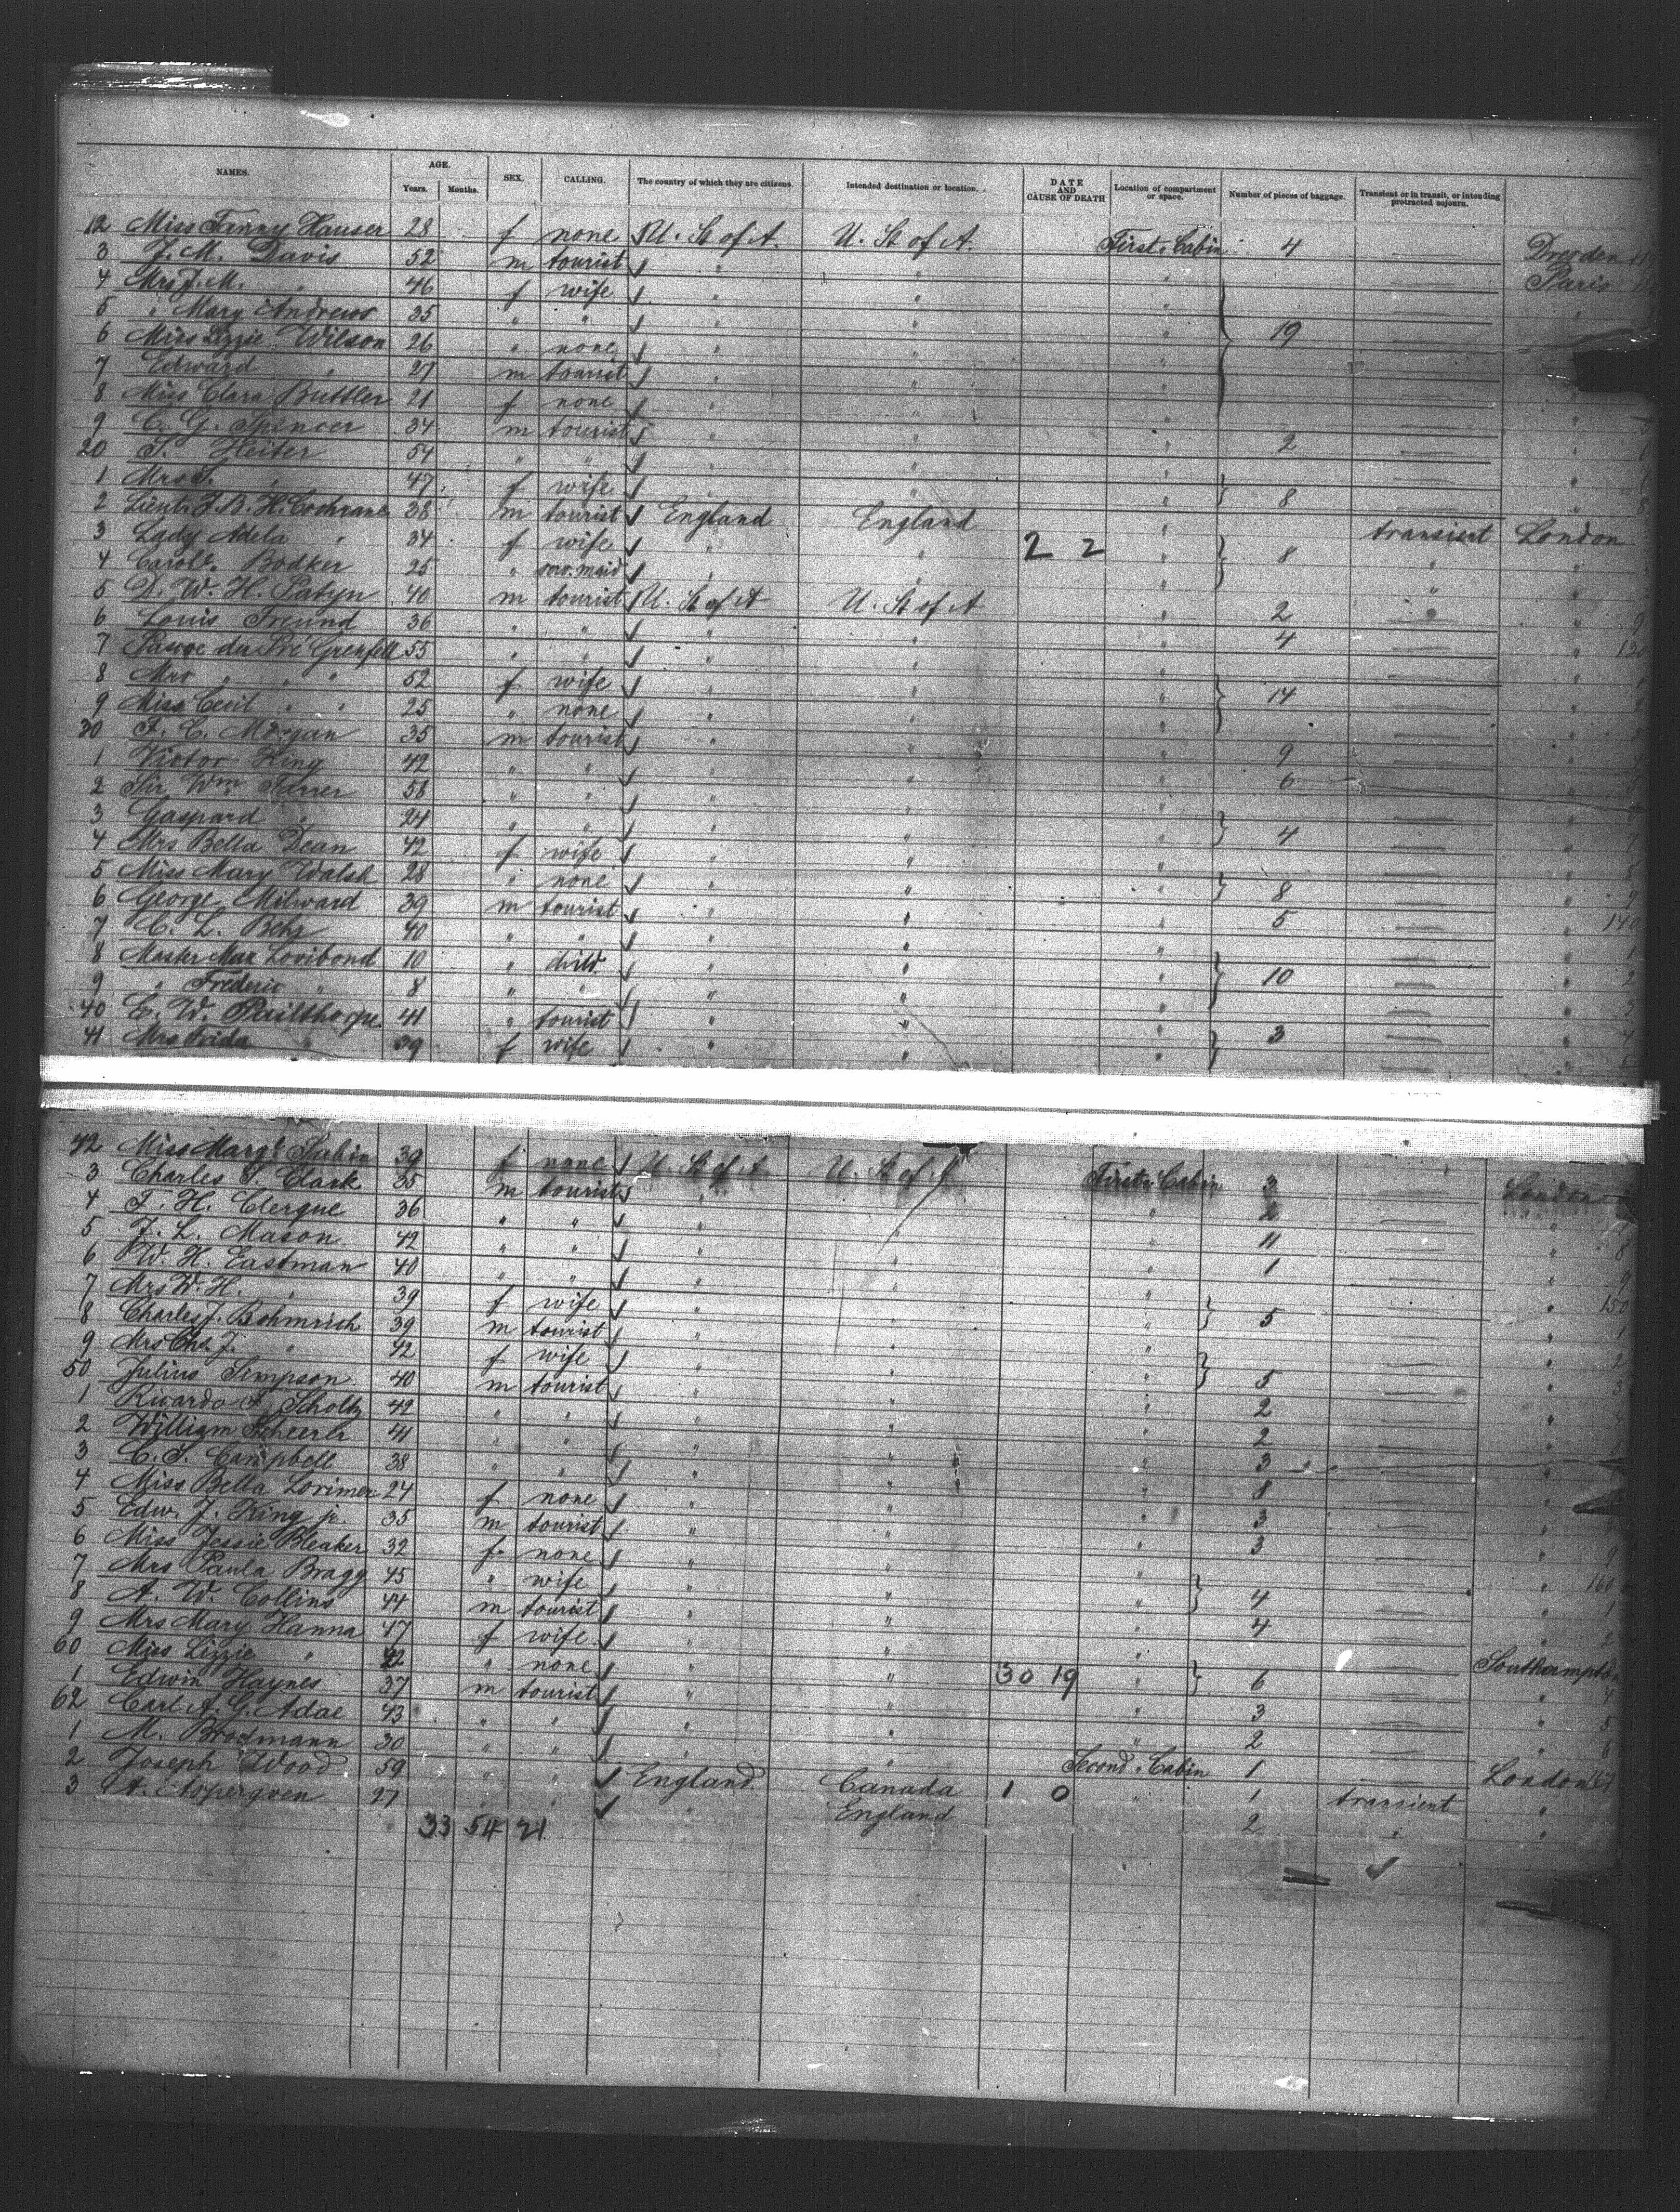 NAMES. AGE. Years. Months. SEX. CALLING. The country of which they are citizens. Intended destination or location. DATE AND CAUSE OF DEATH Location of compartment or space. Number of pieces of baggage. Transient or in transit, or intending protracted sojourn.
12 Miss Fanny Hauser 28 f none U. St of A. U. St of A. First Cabin 4 Dresden
3 J. M. Davis 52 m tourist " " " Paris
4 Mrs J. M. " 46 f wife " " "
5 " Mary Andrews 35 " " " " " 19
6 Miss Lizzie Wilson 26 " none " " "
7 Edward " 27 m tourist " " "
8 Miss Clara Buttler 21 f none " " "
9 C. G. Spencer 34 m tourist " " " 2
20 S. Heiter 54 " " " " "
1 Mrs S. " 47 f wife " " " 8
2 Lieut. J. B. H. Cochrane 38 m tourist England England " transient London
3 Lady Adela " 34 f wife " " 2 2 " 8 " "
4 Carol. Bodker 25 " serv. maid " " " " "
5 D. W. H. Patyn 40 m tourist U. St of A U. St of A " 2 "
6 Louis Freund 36 " " " " " 4 "
7 Pascoe du Pré Grenfell 55 " " " " " " 130
8 Mrs " " " 52 f wife " " " 14 "
9 Miss Cecil " " 25 " none " " " "
30 F. C. Morgan 35 m tourist " " " 9 "
1 Victor King 42 " " " " " 6 "
2 Sir Wm Farrer 58 " " " " " "
3 Gaspard " 24 " " " " " 4 "
4 Mrs Bella Dean 42 f wife " " " "
5 Miss Mary Walsh 28 " none " " " 8 "
6 George Milward 39 m tourist " " " 5 " 140
7 C. L. Behr 40 " " " " " "
8 Master Max Lovibond 10 " child " " " 10 "
9 " Frederic " 8 " " " " " "
40 E. W. Pailthorpe 41 " tourist " " " 3 "
41 Mrs Frida 39 f wife " " " "
42 Miss Margt Sabin 39 f none U. St of A U. St of A First Cabin 3 London
3 Charles S. Clark 35 m tourist " " " "
4 F. H. Clergue 36 " " " " " 11 "
5 F. L. Mason 42 " " " " " 1 "
6 W. H. Eastman 40 " " " " " " 150
7 Mrs W. H. " 39 f wife " " " 5 "
8 Charles J. Bohmrich 39 m tourist " " " "
9 Mrs Chs J. " 42 f wife " " " 5 "
50 Julius Simpson 40 m tourist " " " 2 "
1 Ricardo F. Scholtz 42 " " " " " 2 "
2 William Scheerer 41 " " " " " 3 "
3 C. S. Campbell 38 " " " " " 8 "
4 Miss Bella Lorimer 24 f none " " " 3
5 Edw. J. King jr. 35 m tourist " " " 3 "
6 Miss Jessie Bleaker 32 f none " " " " 160
7 Mrs Paula Bragg 45 " wife " " " 4 "
8 A. W. Collins 44 m tourist " " " 4 "
9 Mrs Mary Hanna 47 f wife " " " Southampton
60 Miss Lizzie " " none " " 30 19 " 6 "
1 Edwin Haynes 37 m tourist " " " 3 "
62 Carl A. G. Adae 43 " " " " " 2 "
1 M. Brodmann 30 " " " " Second Cabin 1 London 167
2 Joseph Wood 59 " " England Canada 1 0 " 1 transient "
3 A. Aspergren 27 " England 2 " "
33 54 21